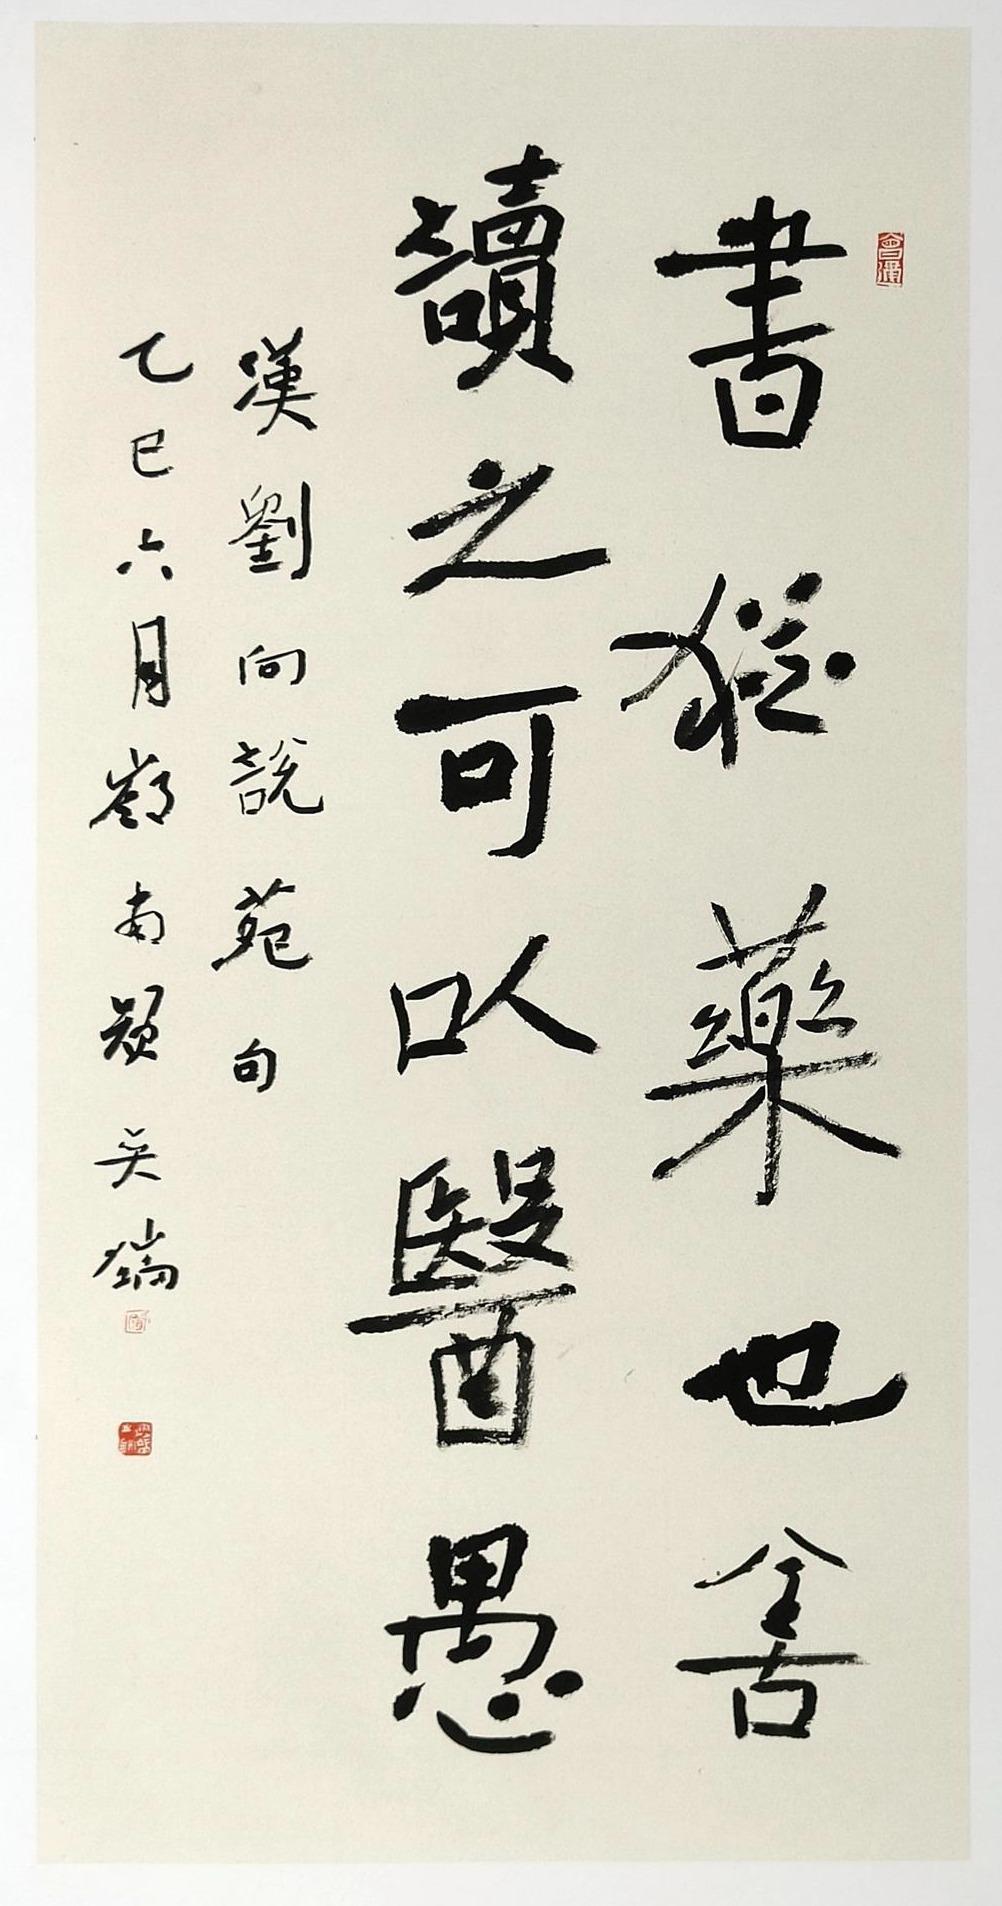 書猶藥也善
讀之可以醫愚
漢劉向說苑句
乙巳六月嶺南